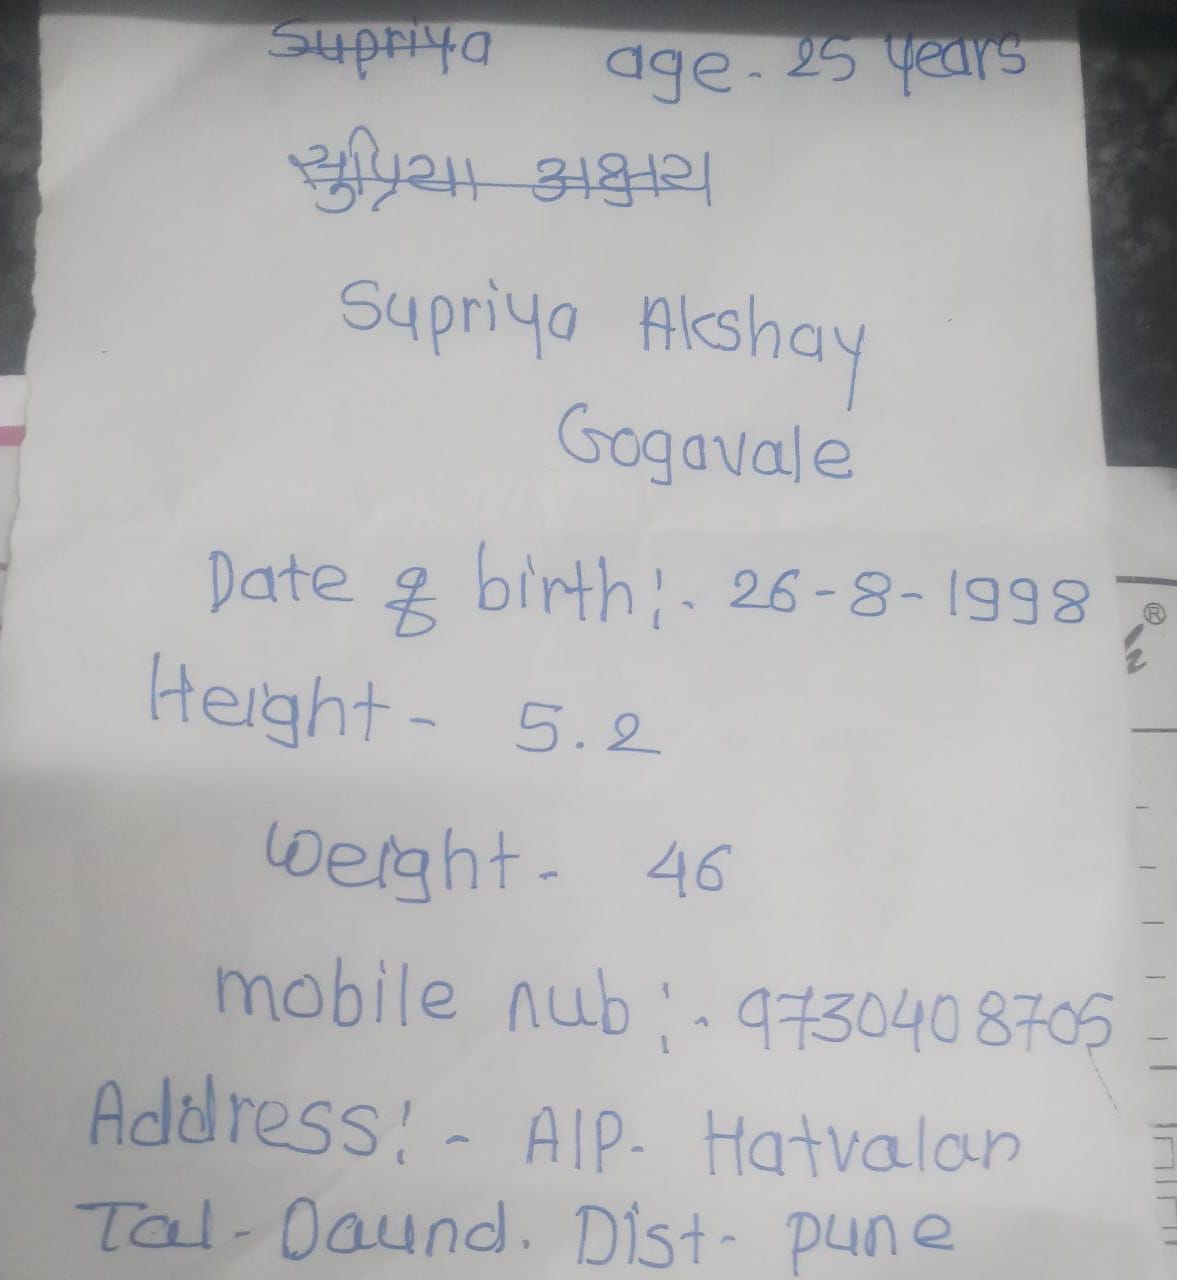 Supriya age. 25 years
सुप्रिया अक्षय
Supriya Akshay
Gogavale
Date of birth:- 26-8-1998
Height - 5.2
Weight - 46
mobile nub:- 9730408705
Address:- A/P- Hatvalan
Tal - Daund. Dist- pune
®